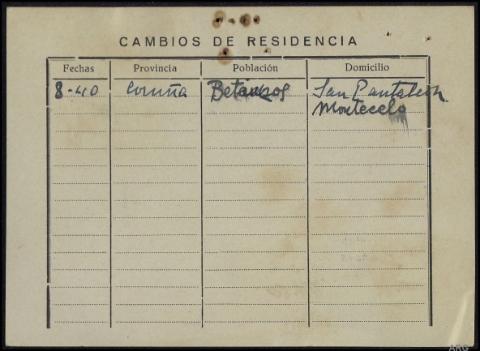 CAMBIOS DE RESIDENCIA
Fechas Provincia Población Domicilio
8-40 Coruña Betanzos San Pantaleón
Montecelo
ARG